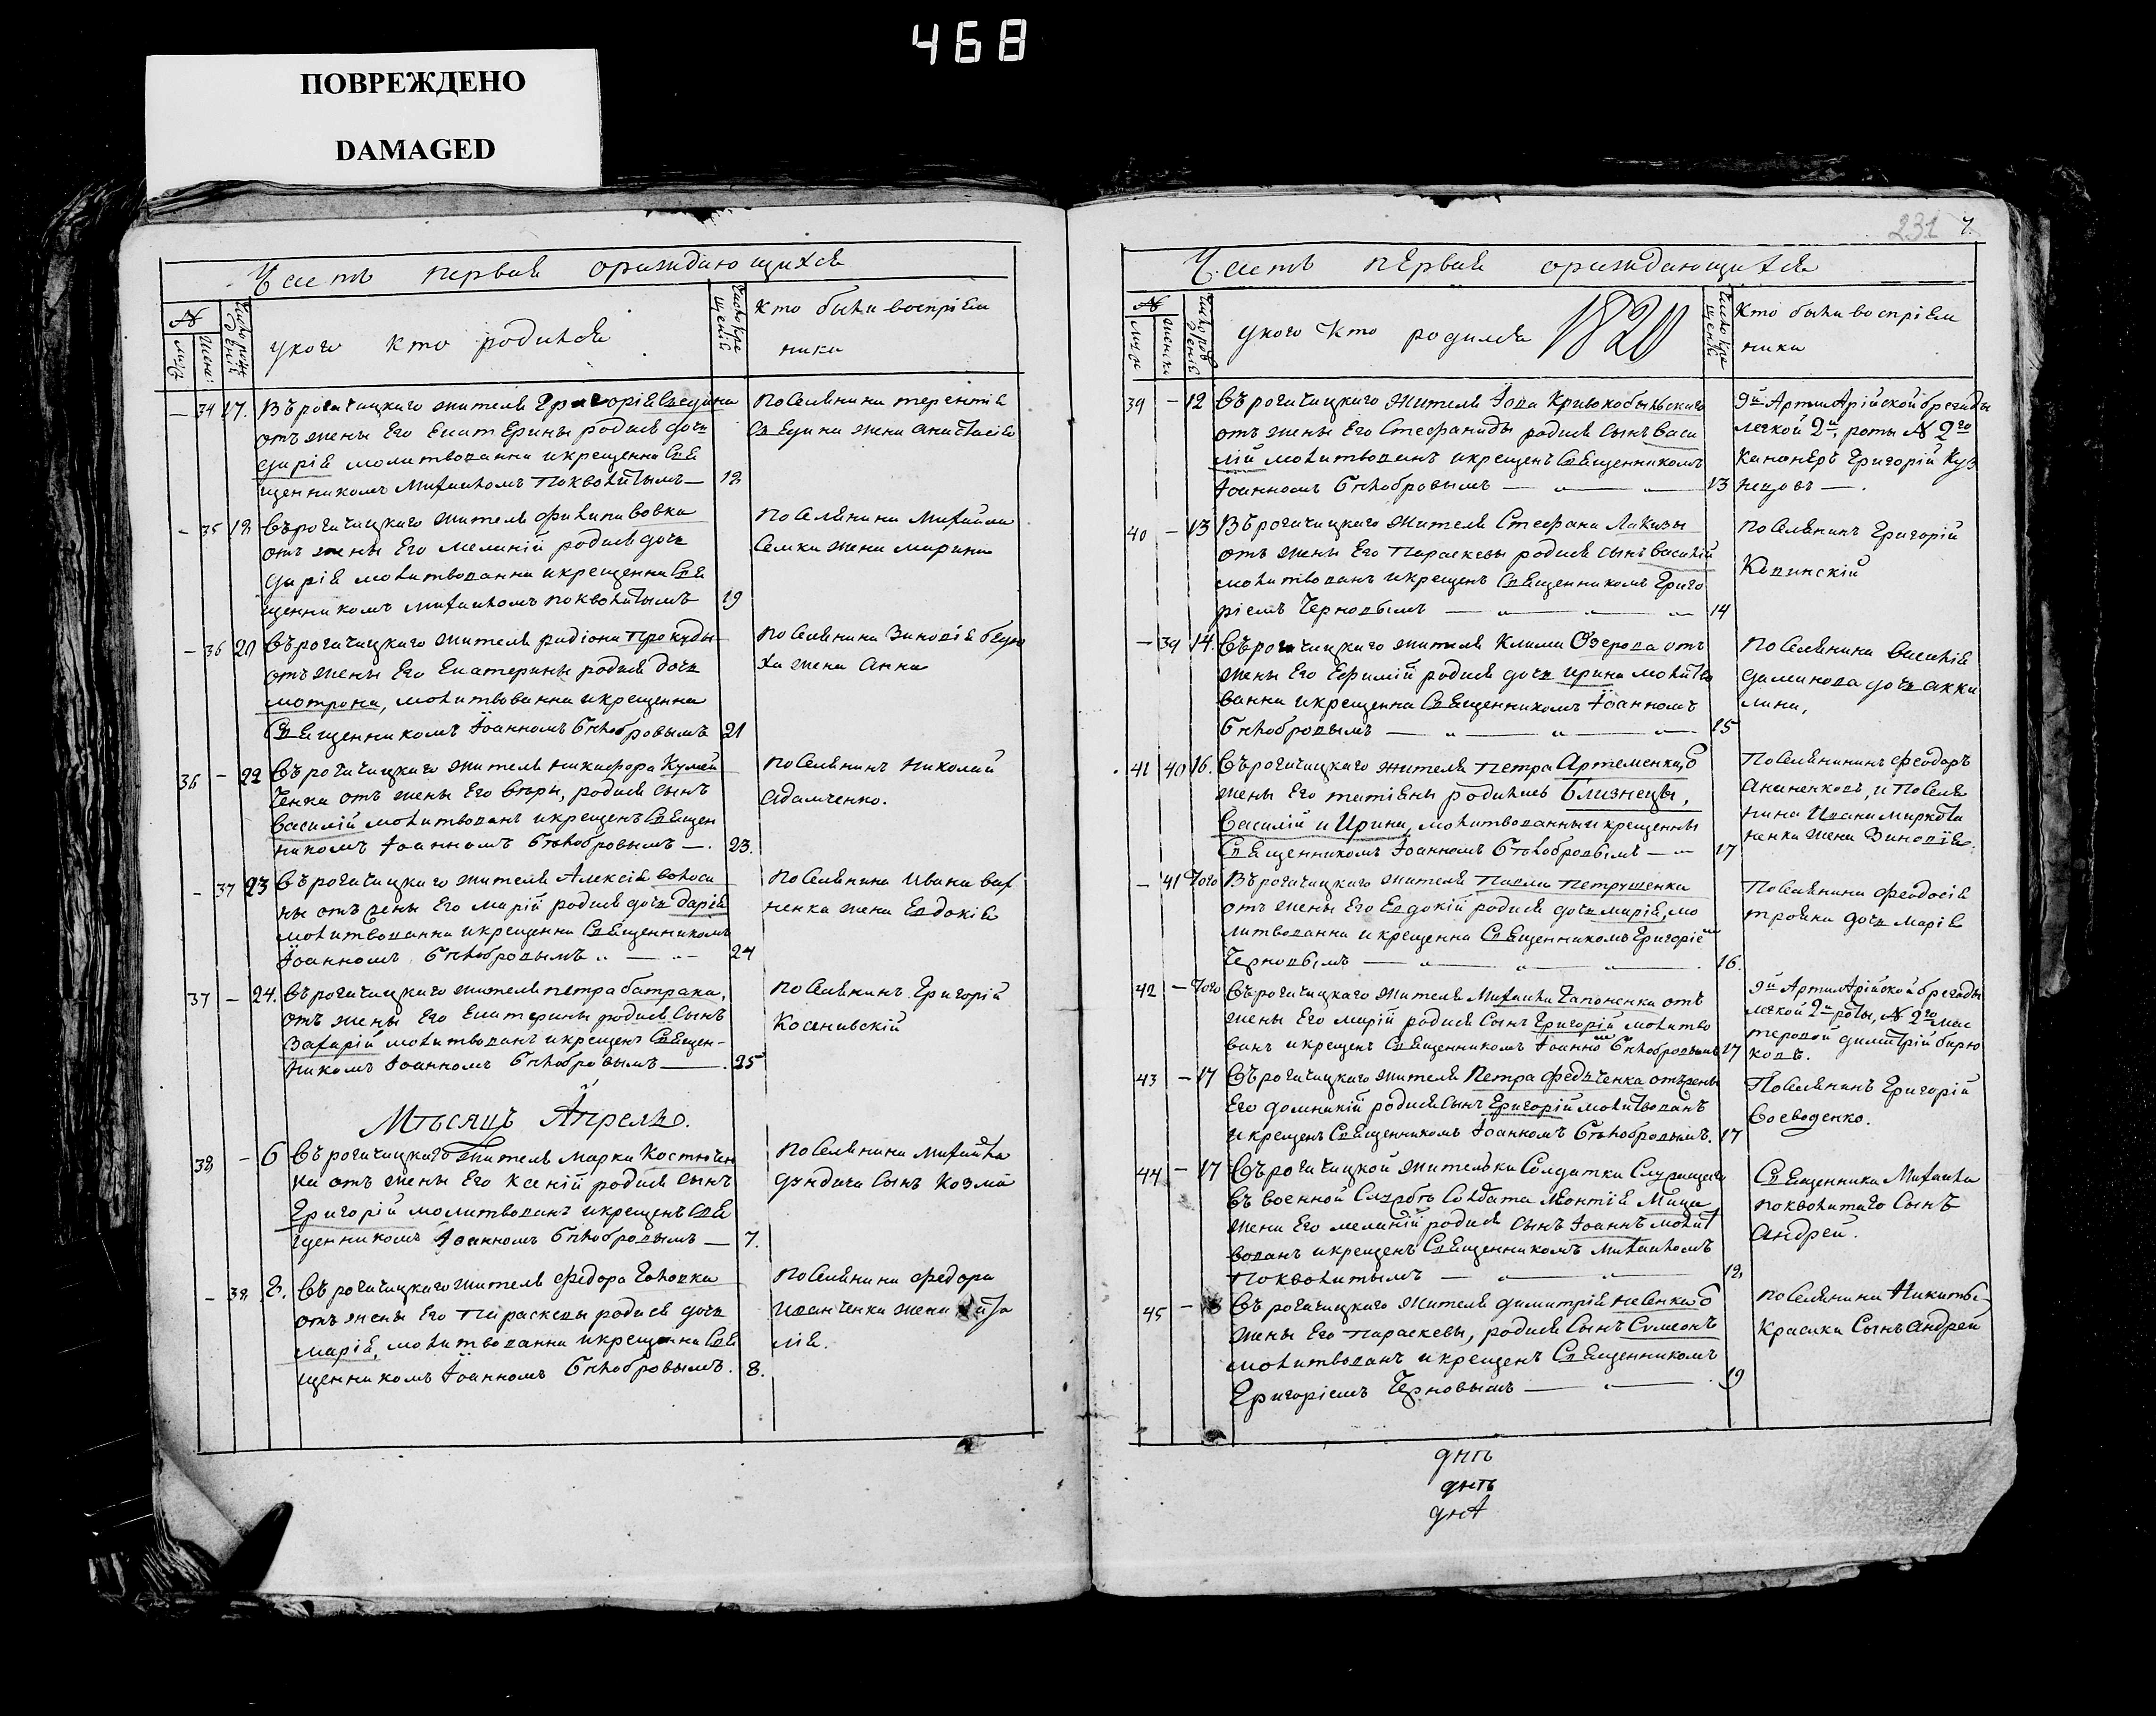 468
ПОВРЕЖДЕНО
DAMAGED
Часть первая ораждающихся
№
Число рож
дения
у кого кто родился
Число кре
щения
Кто были восприем
ники
муж
жен:
— 34 17. В рогачицкаго жителя Григорія
отъ жены Его Екатерины родися дочь
дарія молитвованна и крещенна Све
щенникомъ Михаиломъ Покволитымъ — 18
Поселянина терентія
жена анастасія
— 35 18 Въ рогачицкаго жителя филипа вовка
отъ жены Его меланій родися дочь
дарія молитвованна и крещенна Све
щенникомъ Михаиломъ покволитымъ 19
Поселянина Михаила
Семка жена марина
— 36 20 Въ рогачицкаго жителя радіона прокуды
отъ жены Его Екатерины родися дочь
мотрона, молитвованна и крещенна
Священникомъ Іоанномъ Бѣлобровымъ 21
Поселянина Зиновія
жена анна
36 — 22 Въ рогачицкаго жителя никифора
ченка отъ жены Его вѣры, родися сынъ
василій молитвованъ и крещенъ Священ
никомъ Іоанномъ Бѣлобровымъ —. 23.
Поселянинъ Николай
адамченко.
— 37 23 Въ рогачицкаго жителя Алексія волоси
ны отъ жены Его марій родися дочь дарія
молитвованна и крещенна Священникомъ
Іоанномъ Бѣлобровымъ — 24
Поселянина Ивана вах
ненка жена Евдокія
37 — 24. Въ рогачицкаго жителя петра батрака,
отъ жены Его Екатерины родися сынъ
Захарій молитвованъ и крещенъ Священ-
никомъ Іоанномъ Бѣлобровымъ —. 25
Поселянинъ Григорій
Косеневскій
Мѣсяцъ Апрель.
38 — 6 Въ рогачицкаго жителя марка Костючен
ка отъ жены Его Ксеній родися сынъ
Григорій молитвованъ и крещенъ Све
щенникомъ Іоанномъ Бѣлобровымъ — 7.
Поселянина Михайла
дундича сынъ Козма
— 38 8. Въ рогачицкаго жителя федора Головка
отъ жены Его параскевы родися дочь
марія, молитвованна и крещенна Све
щенникомъ Іоанномъ Бѣлобровымъ. 8.
Поселянина федора
иванченка жена
лія.
231 7
Часть первая ораждающихся
№
мужска
женска
Число рож
дения
у кого кто родился 1820
Число кре
щения
Кто были восприем
ники
39 — 12 Въ рогачицкаго жителя Іова Кривокобыльскаго
отъ жены Его Стефаниды родися сынъ Васи
лій молитвованъ и крещенъ Священникомъ
Іоанномъ Бѣлобровымъ — 13
9й Артилерійской бригады
легкой 2й роты № 2го
Канонеръ Григорій Куз
нецовъ —.
40 — 13 Въ рогачицкаго жителя Стефана Лакизы
отъ жены Его параскевы родися сынъ василій
молитвованъ и крещенъ Священникомъ Григо
ріемъ Черновымъ — 14
Поселянинъ Григорій
— 39 14. Въ рогачицкаго жителя Клима Озерова отъ
жены Его Ефимій родися дочь ирина молитво
ванна и крещенна Священникомъ Іоанномъ
Бѣлобровымъ — 15
Поселянина василія
дочь акки
лина,
41 40 16. Въ рогачицкаго жителя петра Артеменка, о
жены Его татіяны родились близнецы,
Василій и Ирина, молитвованны и крещенны
Священникомъ Іоанномъ Бѣлобровымъ — 17
Поселянининъ феодоръ
Ананенковъ, и Поселя
нина Ивана
нанка жена Зиновія.
— 41 Того Въ рогачицкаго жителя Павла петрушенка
отъ жены Его Евдокій родися дочь марія, мо
литвованна и крещенна Священникомъ Григоріемъ
Черновымъ — 16.
Поселянина Феодосія
дочь марія
42 — Того Въ рогачицкаго жителя Михаила Гапоненка отъ
жены Его марій родися сынъ Григорій молитво
ванъ и крещенъ Священникомъ Іоанномъ Бѣлобровымъ 17
9й Артилерійской бригады
легкой 2й роты, № 2го мас
теровой димитрій бирю
ковъ.
43 — 17 Въ рогачицкаго жителя Петра федченка отъ жены
Его домникій родися сынъ Григорій молитвованъ
и крещенъ Священникомъ Іоанномъ Бѣлобровымъ. 17
Поселянинъ Григорій
Воеводенко.
44 — 17 Въ рогачицкой жительки Солдатки Служащаго
въ военной Службѣ Солдата леонтія
жена Его меланій родися сынъ Іоаннъ молит
вованъ и крещенъ Священникомъ Михаиломъ
Покволитымъ — 18
Священника Михаила
покволитаго сынъ
андрей.
45 — Въ рогачицкаго жителя димитрія о
жены Его параскевы, родися сынъ Симеонъ
молитвованъ и крещенъ Священникомъ
Григоріемъ Черновымъ — 19
Поселянина Никиты
красика сынъ андрей
днъ
днъ
дна